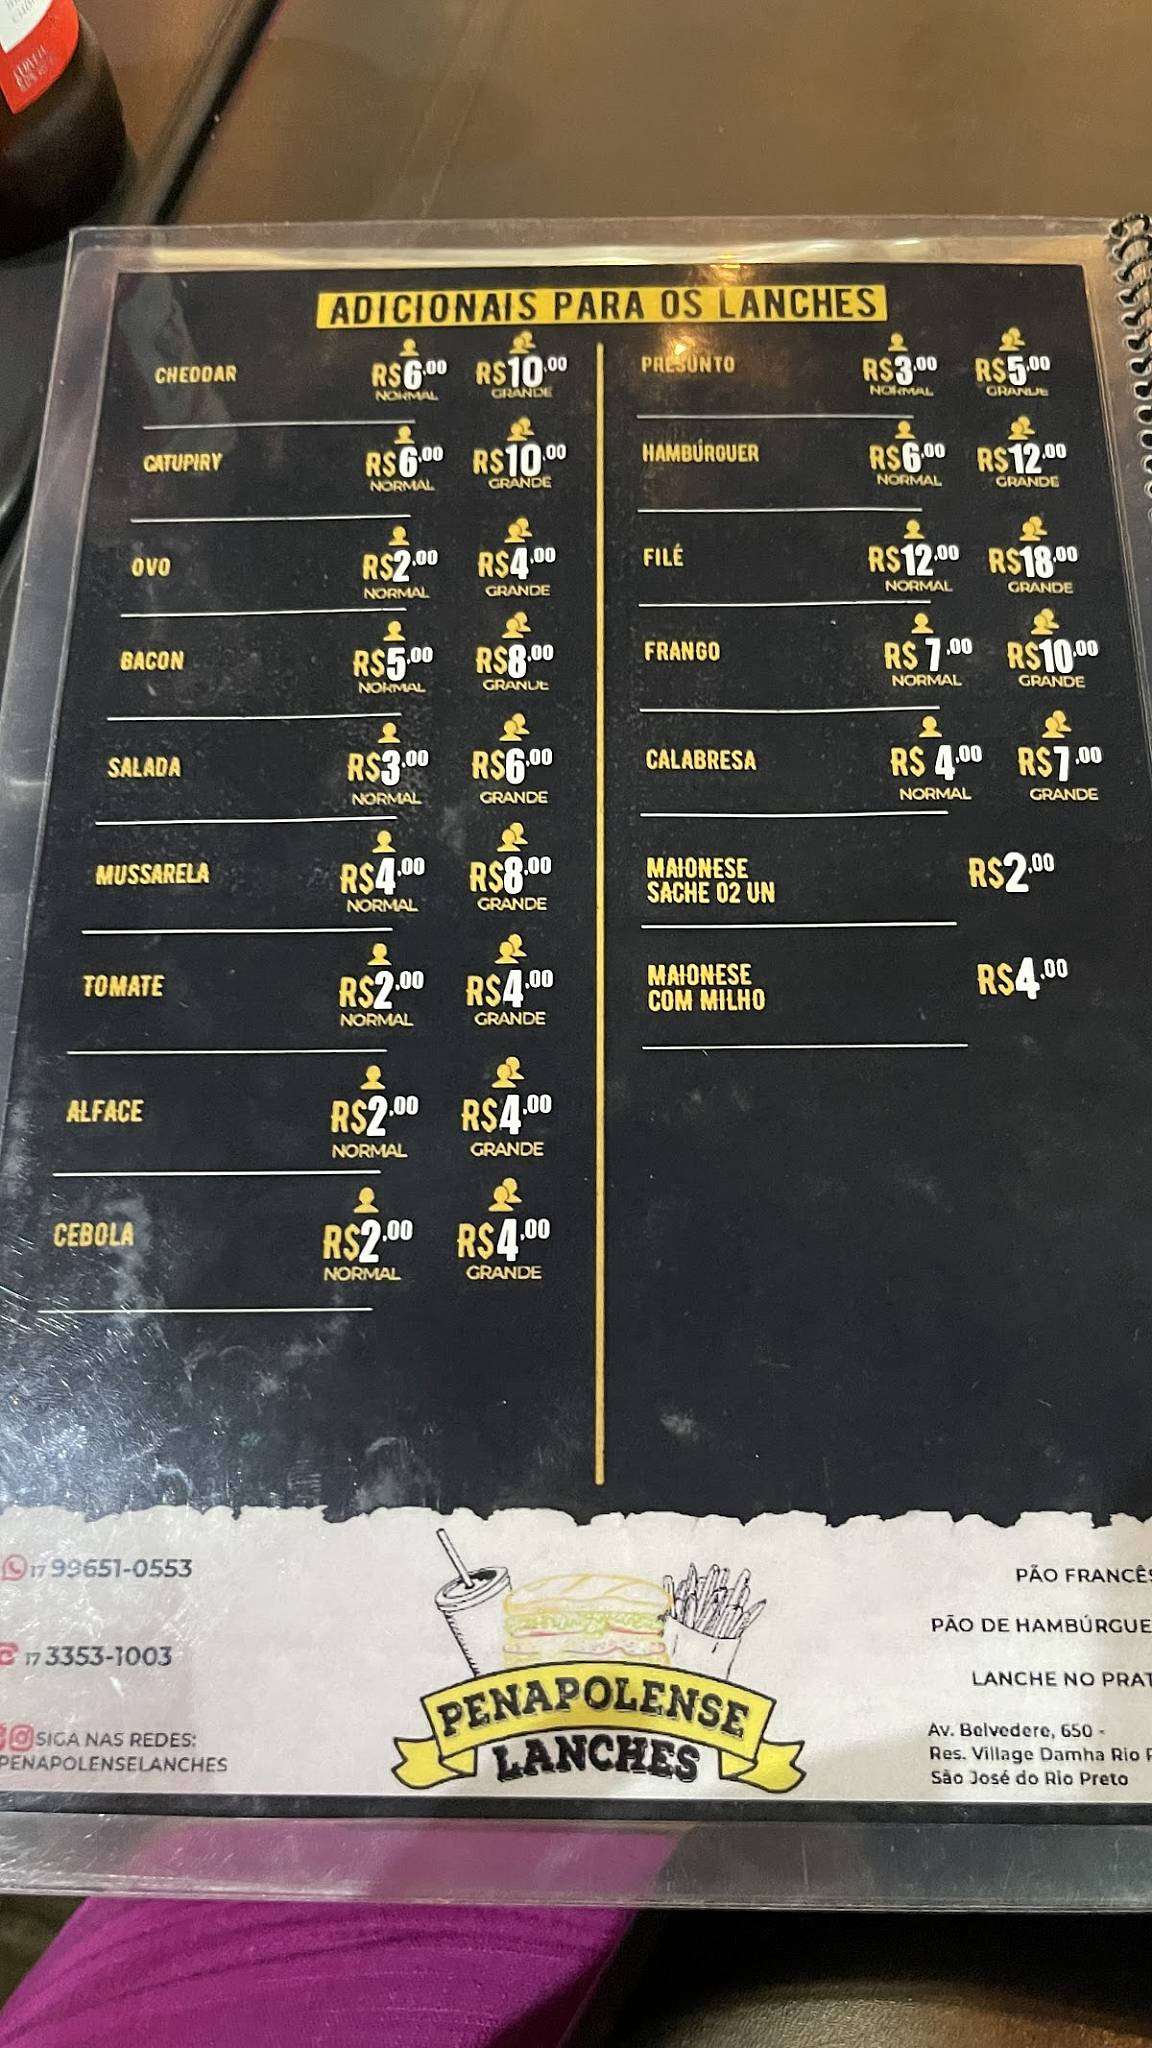 ADICIONAIS PARA OS LANCHES
CHEDDAR R$6,00 NORMAL R$10,00 GRANDE
CATUPIRY R$6,00 NORMAL R$10,00 GRANDE
OVO R$2,00 NORMAL R$4,00 GRANDE
BACON R$5,00 NORMAL R$8,00 GRANDE
SALADA R$3,00 NORMAL R$6,00 GRANDE
MUSSARELA R$4,00 NORMAL R$8,00 GRANDE
TOMATE R$2,00 NORMAL R$4,00 GRANDE
ALFACE R$2,00 NORMAL R$4,00 GRANDE
CEBOLA R$2,00 NORMAL R$4,00 GRANDE
PRESUNTO R$3,00 NORMAL R$5,00 GRANDE
HAMBÚRGUER R$6,00 NORMAL R$12,00 GRANDE
FILÉ R$12,00 NORMAL R$18,00 GRANDE
FRANGO R$ 7,00 NORMAL R$10,00 GRANDE
CALABRESA R$ 4,00 NORMAL R$7,00 GRANDE
MAIONESE
SACHE 02 UN R$2,00
MAIONESE
COM MILHO R$4,00
17 99651-0553
17 3353-1003
SIGA NAS REDES:
PENAPOLENSELANCHES
PENAPOLENSE
LANCHES
PÃO FRANCÊS
PÃO DE HAMBÚRGUE
LANCHE NO PRAT
Av. Belvedere, 650 -
Res. Village Damha Rio
São José do Rio Preto